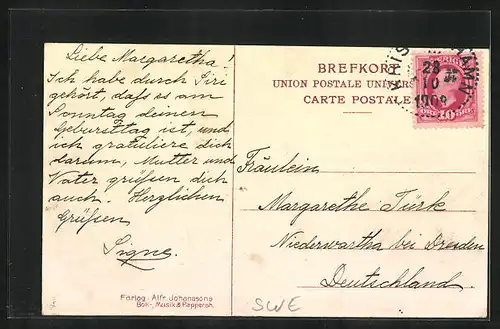 Liebe Margaretha!
Ich habe durch Siri
gehört, dass es am
Sonntag deinen
Geburtstag ist, und
ich gratuliere dich
darum, Mutter und
Vater grüssen dich
auch. Herzlichen
Grüssen
Signe.
Förlag: Alfr. Johanssons
Bok-, Musik & Pappersh.
BREFKORT
UNION POSTALE UNIVERSELLE
CARTE POSTALE
28
10
1908
10 ÖRE
Fräulein
Margarethe Türk
Niederwartha bei Dresden
Deutschland.
SWE